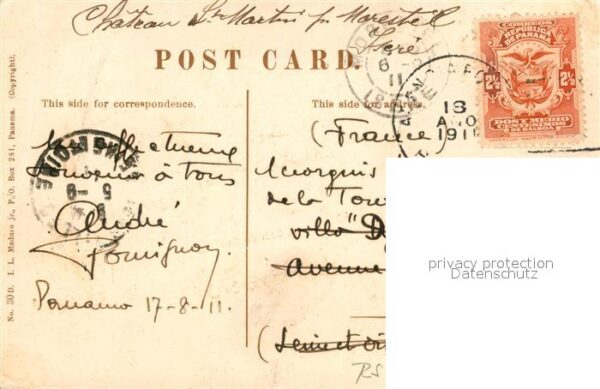 Château St Martin p. Morestel
Isère
POST CARD.
This side for correspondence.
This side for address.
CORREOS
REPUBLICA
DE PANAMA
2½ 2½
DOS Y MEDIO
CENTESIMOS
DE BALBOA
18
AGO
1911
6
11
5-9
(France)
affectueux
Souvenir à tous
André
Panama 17-8-11.
Marquis
de la Tour
villa "D
Avenue
(Seine et Oi
RS
No. 30 D. I. L. Maduro jr., P. O. Box 281, Panama. (Copyright).
privacy protection
Datenschutz